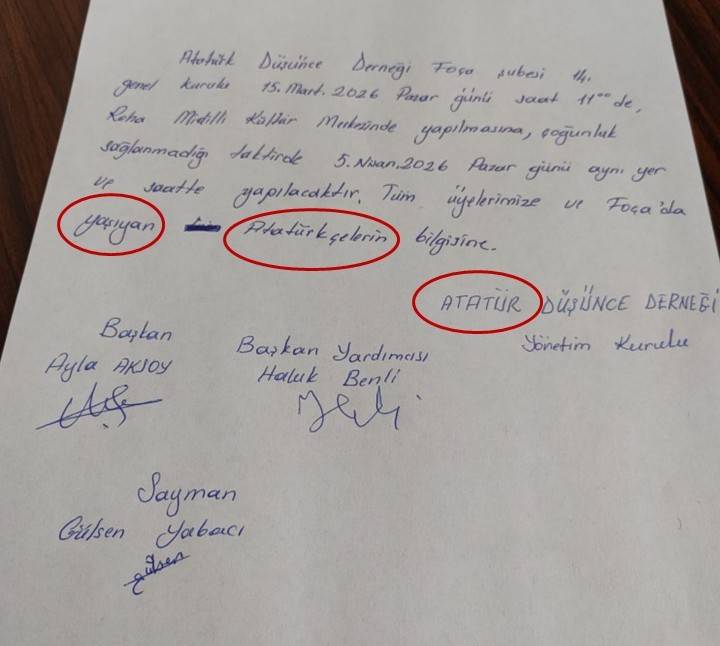 Atatürk Düşünce Derneği Foça şubesi 14.
genel kurulu 15.Mart.2026 Pazar günü saat 11⁰⁰de,
Reha Midilli Kültür Merkezinde yapılmasına, çoğunluk
sağlanmadığı taktirde 5.Nisan.2026 Pazar günü aynı yer
ve saatte yapılacaktır. Tüm üyelerimize ve Foça'da
yaşıyan Atatürkçelerin bilgisine.
ATATÜR DÜŞÜNCE DERNEĞİ
Yönetim Kurulu
Başkan
Ayla AKSOY
Başkan Yardımcısı
Haluk Benli
Sayman
Gülsen Yabacı
gülsen